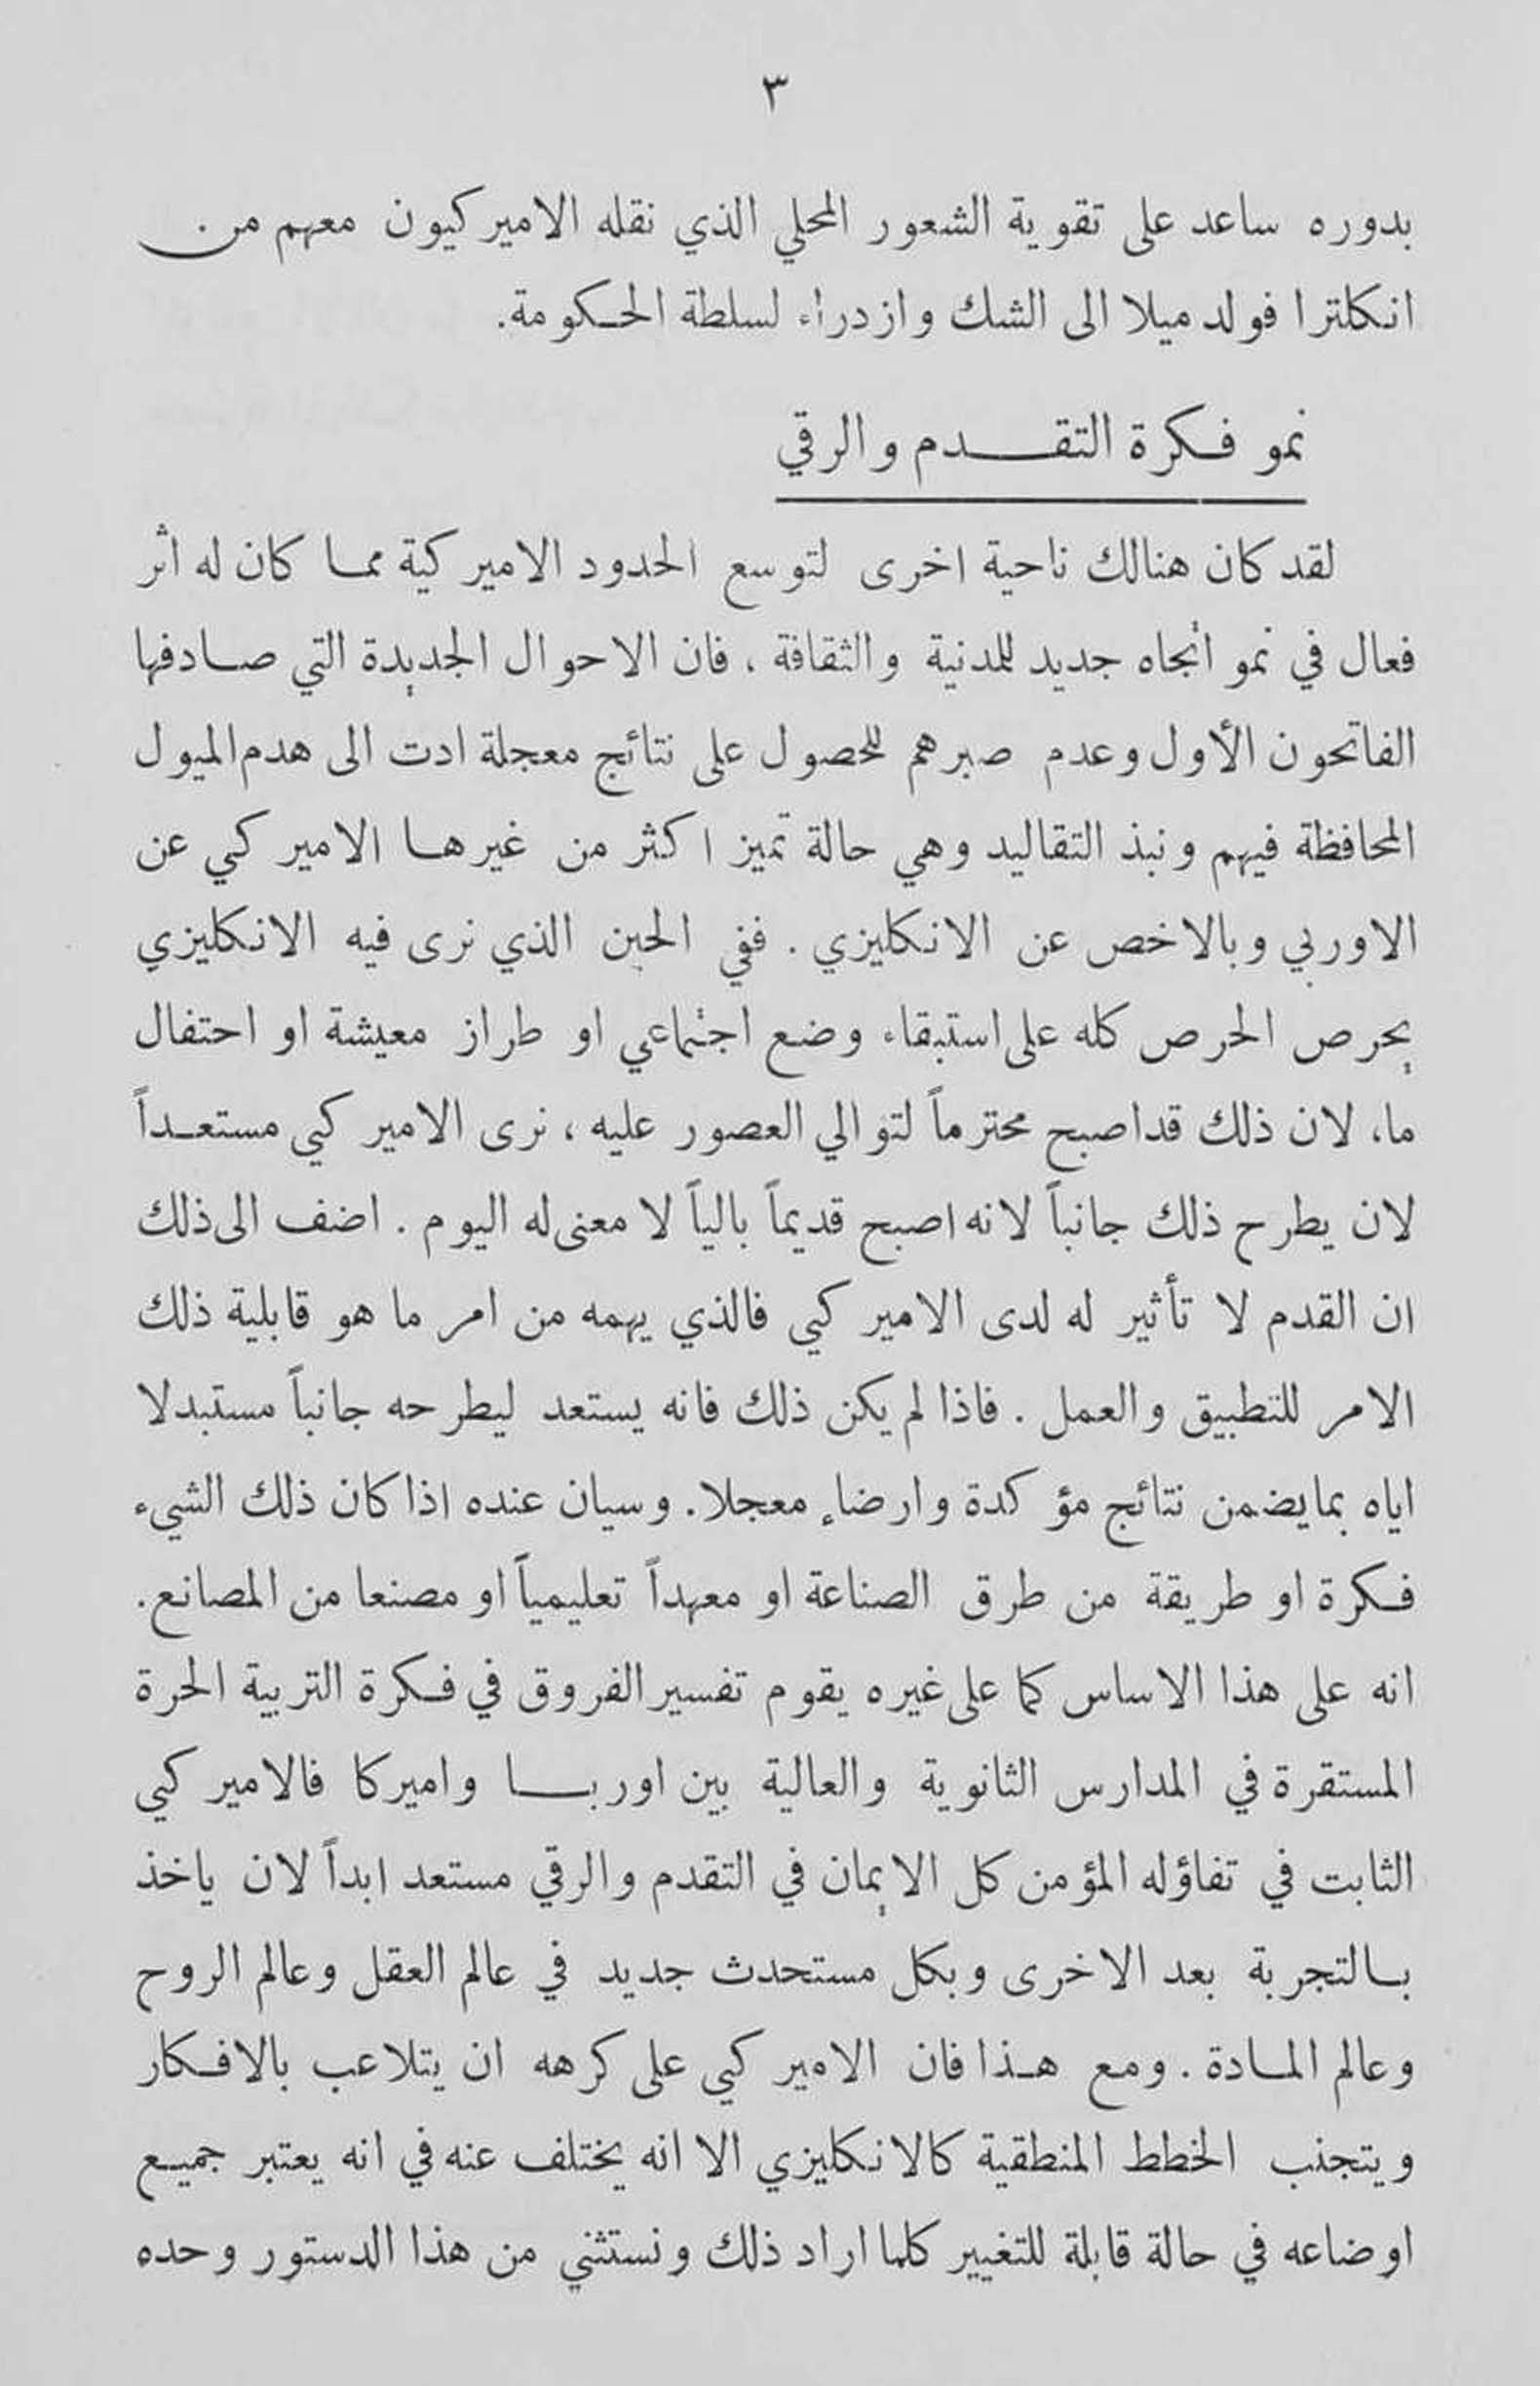 ٣
بدوره ساعد على تقوية الشعور المحلي الذي نقله الاميركيون معهم من
انكلترا فولد ميلا الى الشك وازدراء لسلطة الحكومة.
نمو فكرة التقدم والرقي
لقد كان هنالك ناحية اخرى لتوسع الحدود الاميركية مما كان له اثر
فعال في نمو أتجاه جديد للمدنية والثقافة ، فان الاحوال الجديدة التي صادفها
الفاتحون الأول وعدم صبرهم للحصول على نتائج معجلة ادت الى هدم الميول
المحافظة فيهم ونبذ التقاليد وهي حالة تميز اكثر من غيرها الاميركي عن
الاوربي وبالاخص عن الانكليزي . ففي الحين الذي نرى فيه الانكليزي
يحرص الحرص كله على استبقاء وضع اجتماعي او طراز معيشة او احتفال
ما، لان ذلك قد اصبح محترماً لتوالي العصور عليه ، نرى الاميركي مستعداً
لان يطرح ذلك جانباً لانه اصبح قديماً بالياً لا معنى له اليوم . اضف الى ذلك
ان القدم لا تأثير له لدى الاميركي فالذي يهمه من امر ما هو قابلية ذلك
الامر للتطبيق والعمل . فاذا لم يكن ذلك فانه يستعد ليطرحه جانباً مستبدلا
اياه بما يضمن نتائج مؤكدة وارضاء معجلا. وسيان عنده اذا كان ذلك الشيء
فكرة او طريقة من طرق الصناعة او معهداً تعليمياً او مصنعا من المصانع.
انه على هذا الاساس كما على غيره يقوم تفسير الفروق في فكرة التربية الحرة
المستقرة في المدارس الثانوية والعالية بين اوربا واميركا فالاميركي
الثابت في تفاؤله المؤمن كل الايمان في التقدم والرقي مستعد ابداً لان ياخذ
بالتجربة بعد الاخرى وبكل مستحدث جديد في عالم العقل وعالم الروح
وعالم المادة . ومع هذا فان الاميركي على كرهه ان يتلاعب بالافكار
ويتجنب الخطط المنطقية كالانكليزي الا انه يختلف عنه في انه يعتبر جميع
اوضاعه في حالة قابلة للتغيير كلما اراد ذلك ونستثني من هذا الدستور وحده